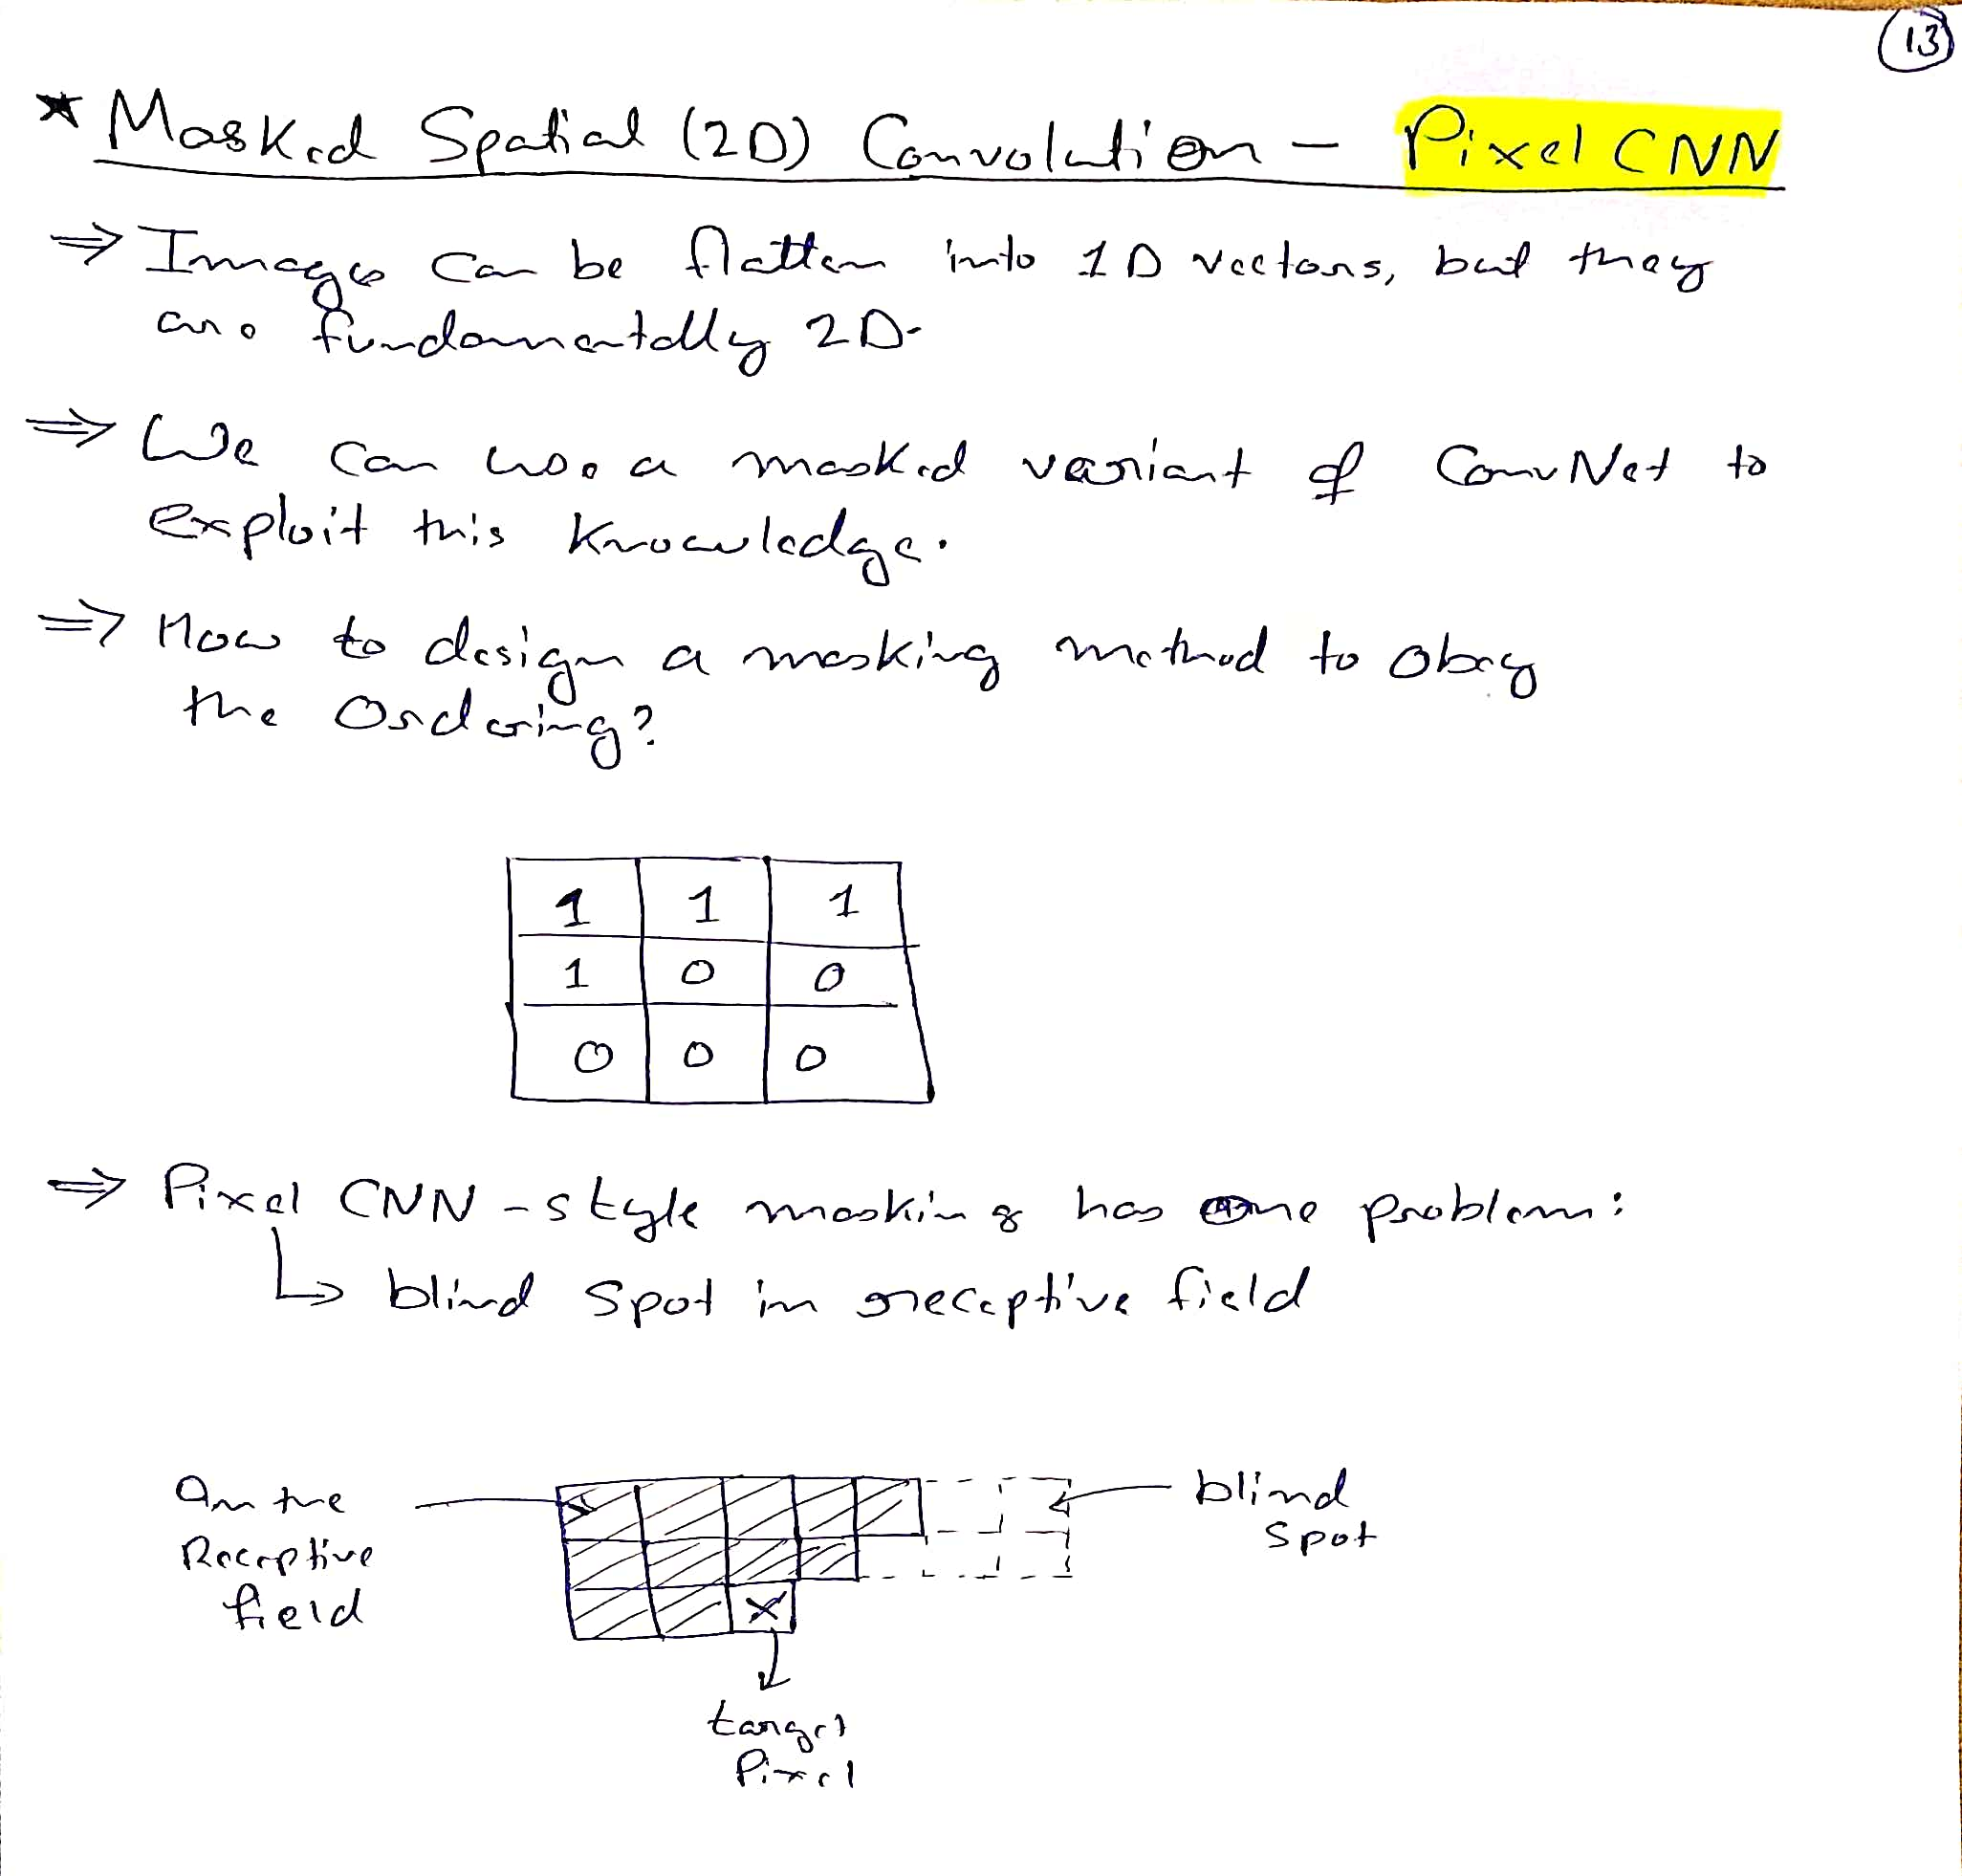 13
* Masked Spatial (2D) Convolution - Pixel CNN
⇒ Images can be flatten into 1D vectors, but they
are fundamentally 2D.
⇒ We can use a masked variant of ConvNet to
exploit this knowledge.
⇒ How to design a masking method to obey
the ordering?
1 1 1
1 0 0
0 0 0
⇒ Pixel CNN - style masking has one problem:
↳ blind spot in receptive field
On the
Receptive
field
blind
spot
x
target
Pixel